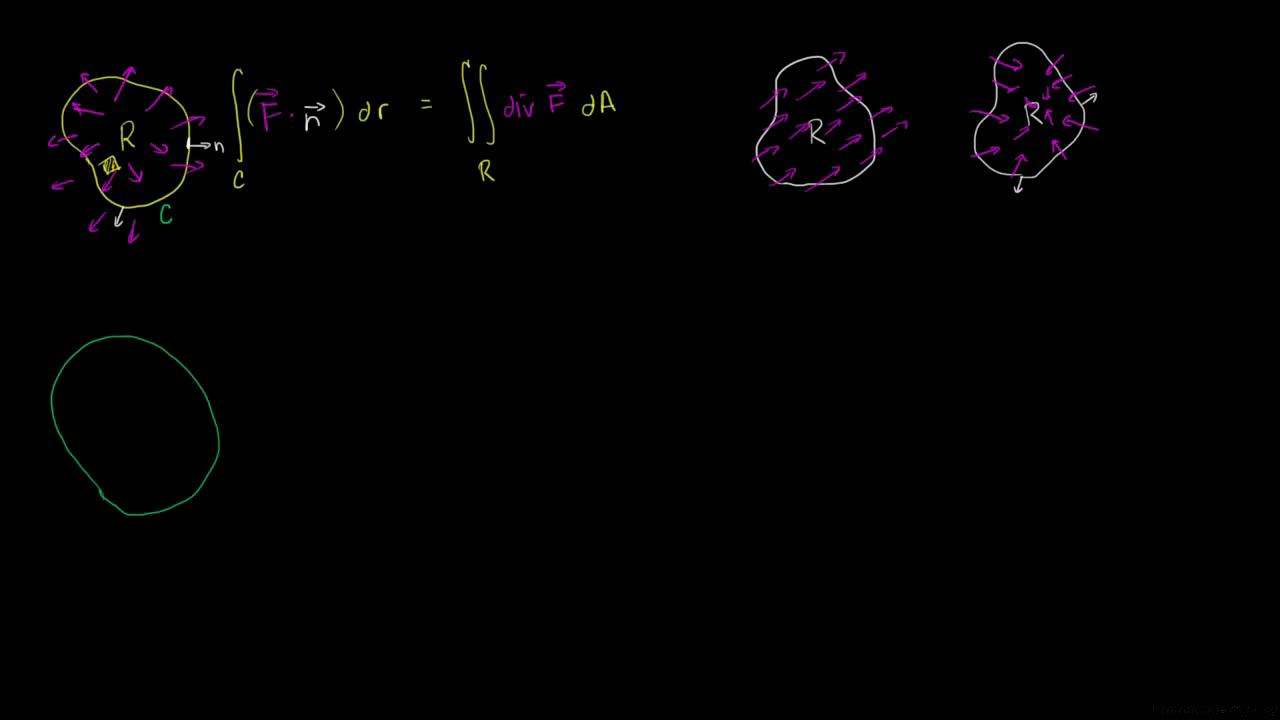 R
n
C
∫_C (F⃗ · n⃗) dr = ∬_R div F⃗ dA
R
R